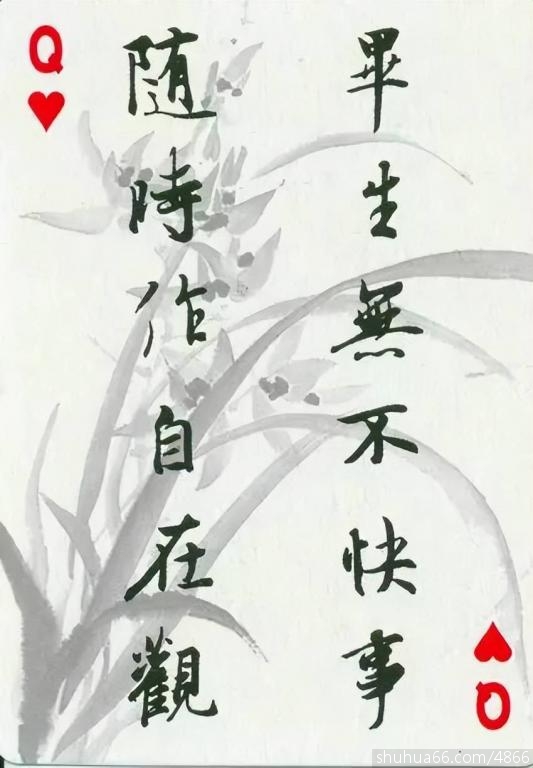 Q
畢生無不快事
隨時作自在觀
Q
shuhua66.com/4866